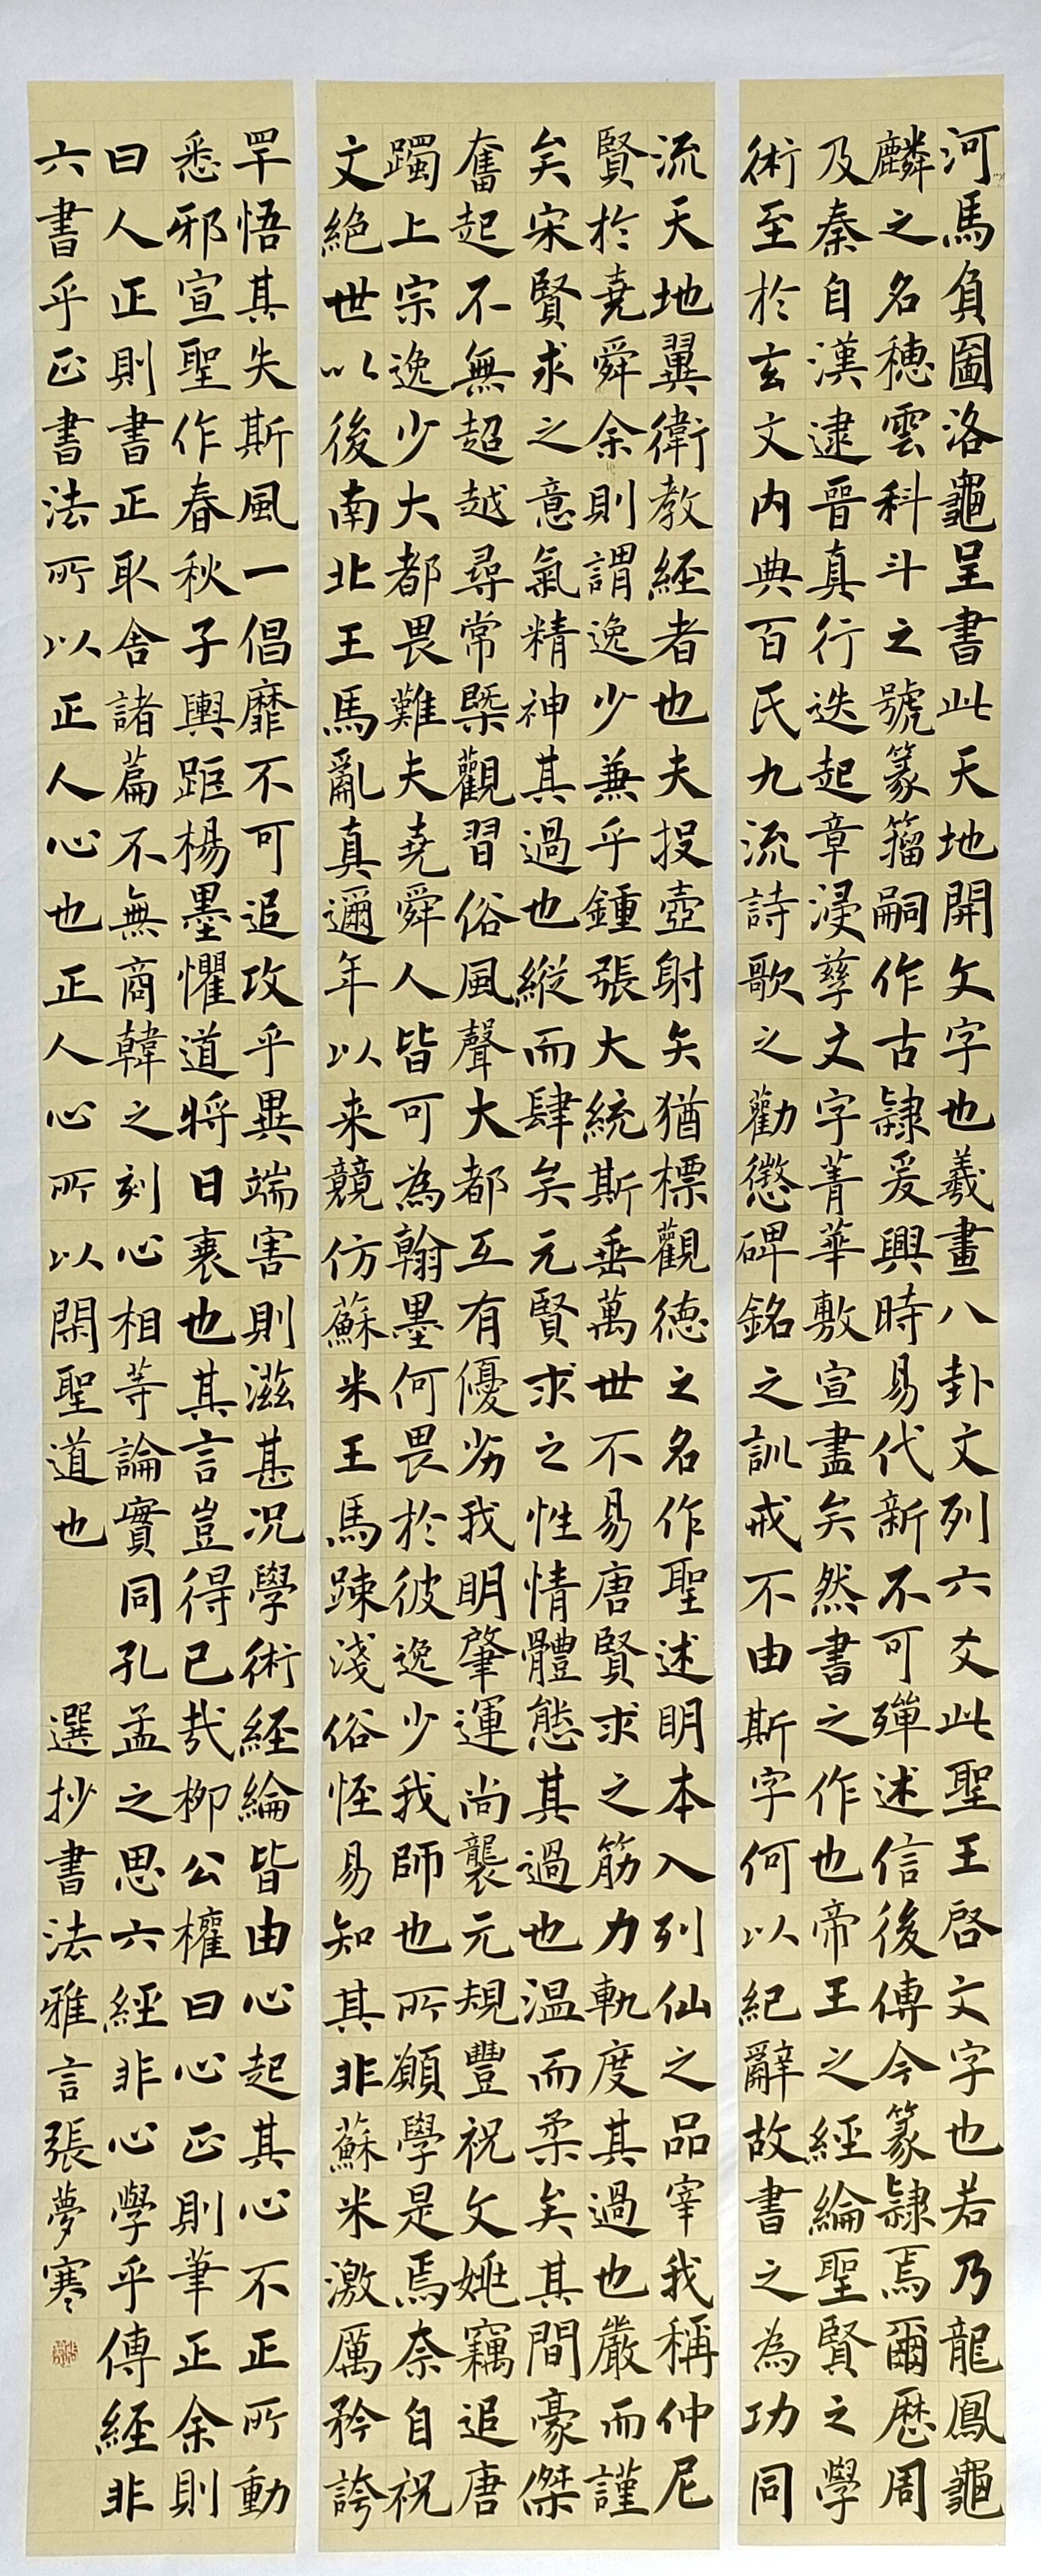 河馬負圖洛龜呈書此天地開文字也羲畫八卦文列六爻此聖王啓文字也若乃龍鳳龜
麟之名穗雲科斗之號篆籀嗣作古隸爰興時易代新不可殫述信後傳今篆隸焉爾歷周
及秦自漢逮晉真行迭起章浸孳文字菁華敷宣盡矣然書之作也帝王之經綸聖賢之學
術至於玄文內典百氏九流詩歌之勸懲碑銘之訓戒不由斯字何以紀辭故書之為功同
流天地翼衛教經者也夫投壺射矢猶標觀德之名作聖述明本入列仙之品宰我稱仲尼
賢於堯舜余則謂逸少兼乎鍾張大統斯垂萬世不易唐賢求之筋力軌度其過也嚴而謹
矣宋賢求之意氣精神其過也縱而肆矣元賢求之性情體態其過也温而柔矣其間豪傑
奮起不無超越尋常槩觀習俗風聲大都互有優劣我明肇運尚襲元規豐祝文姚竊追唐
躅上宗逸少大都畏難夫堯舜人皆可為翰墨何畏於彼逸少我師也所願學是焉奈自祝
文絕世以後南北王馬亂真邇年以来競仿蘇米王馬疎淺俗怪易知其非蘇米激厲矜誇
罕悟其失斯風一倡靡不可追攻乎異端害則滋甚况學術經綸皆由心起其心不正所動
悉邪宣聖作春秋子輿距楊墨懼道將日衰也其言豈得已哉柳公權曰心正則筆正余則
曰人正則書正取舍諸篇不無商韓之刻心相等論實同孔孟之思六經非心學乎傳經非
六書乎正書法所以正人心也正人心所以閑聖道也 選抄書法雅言張夢寒